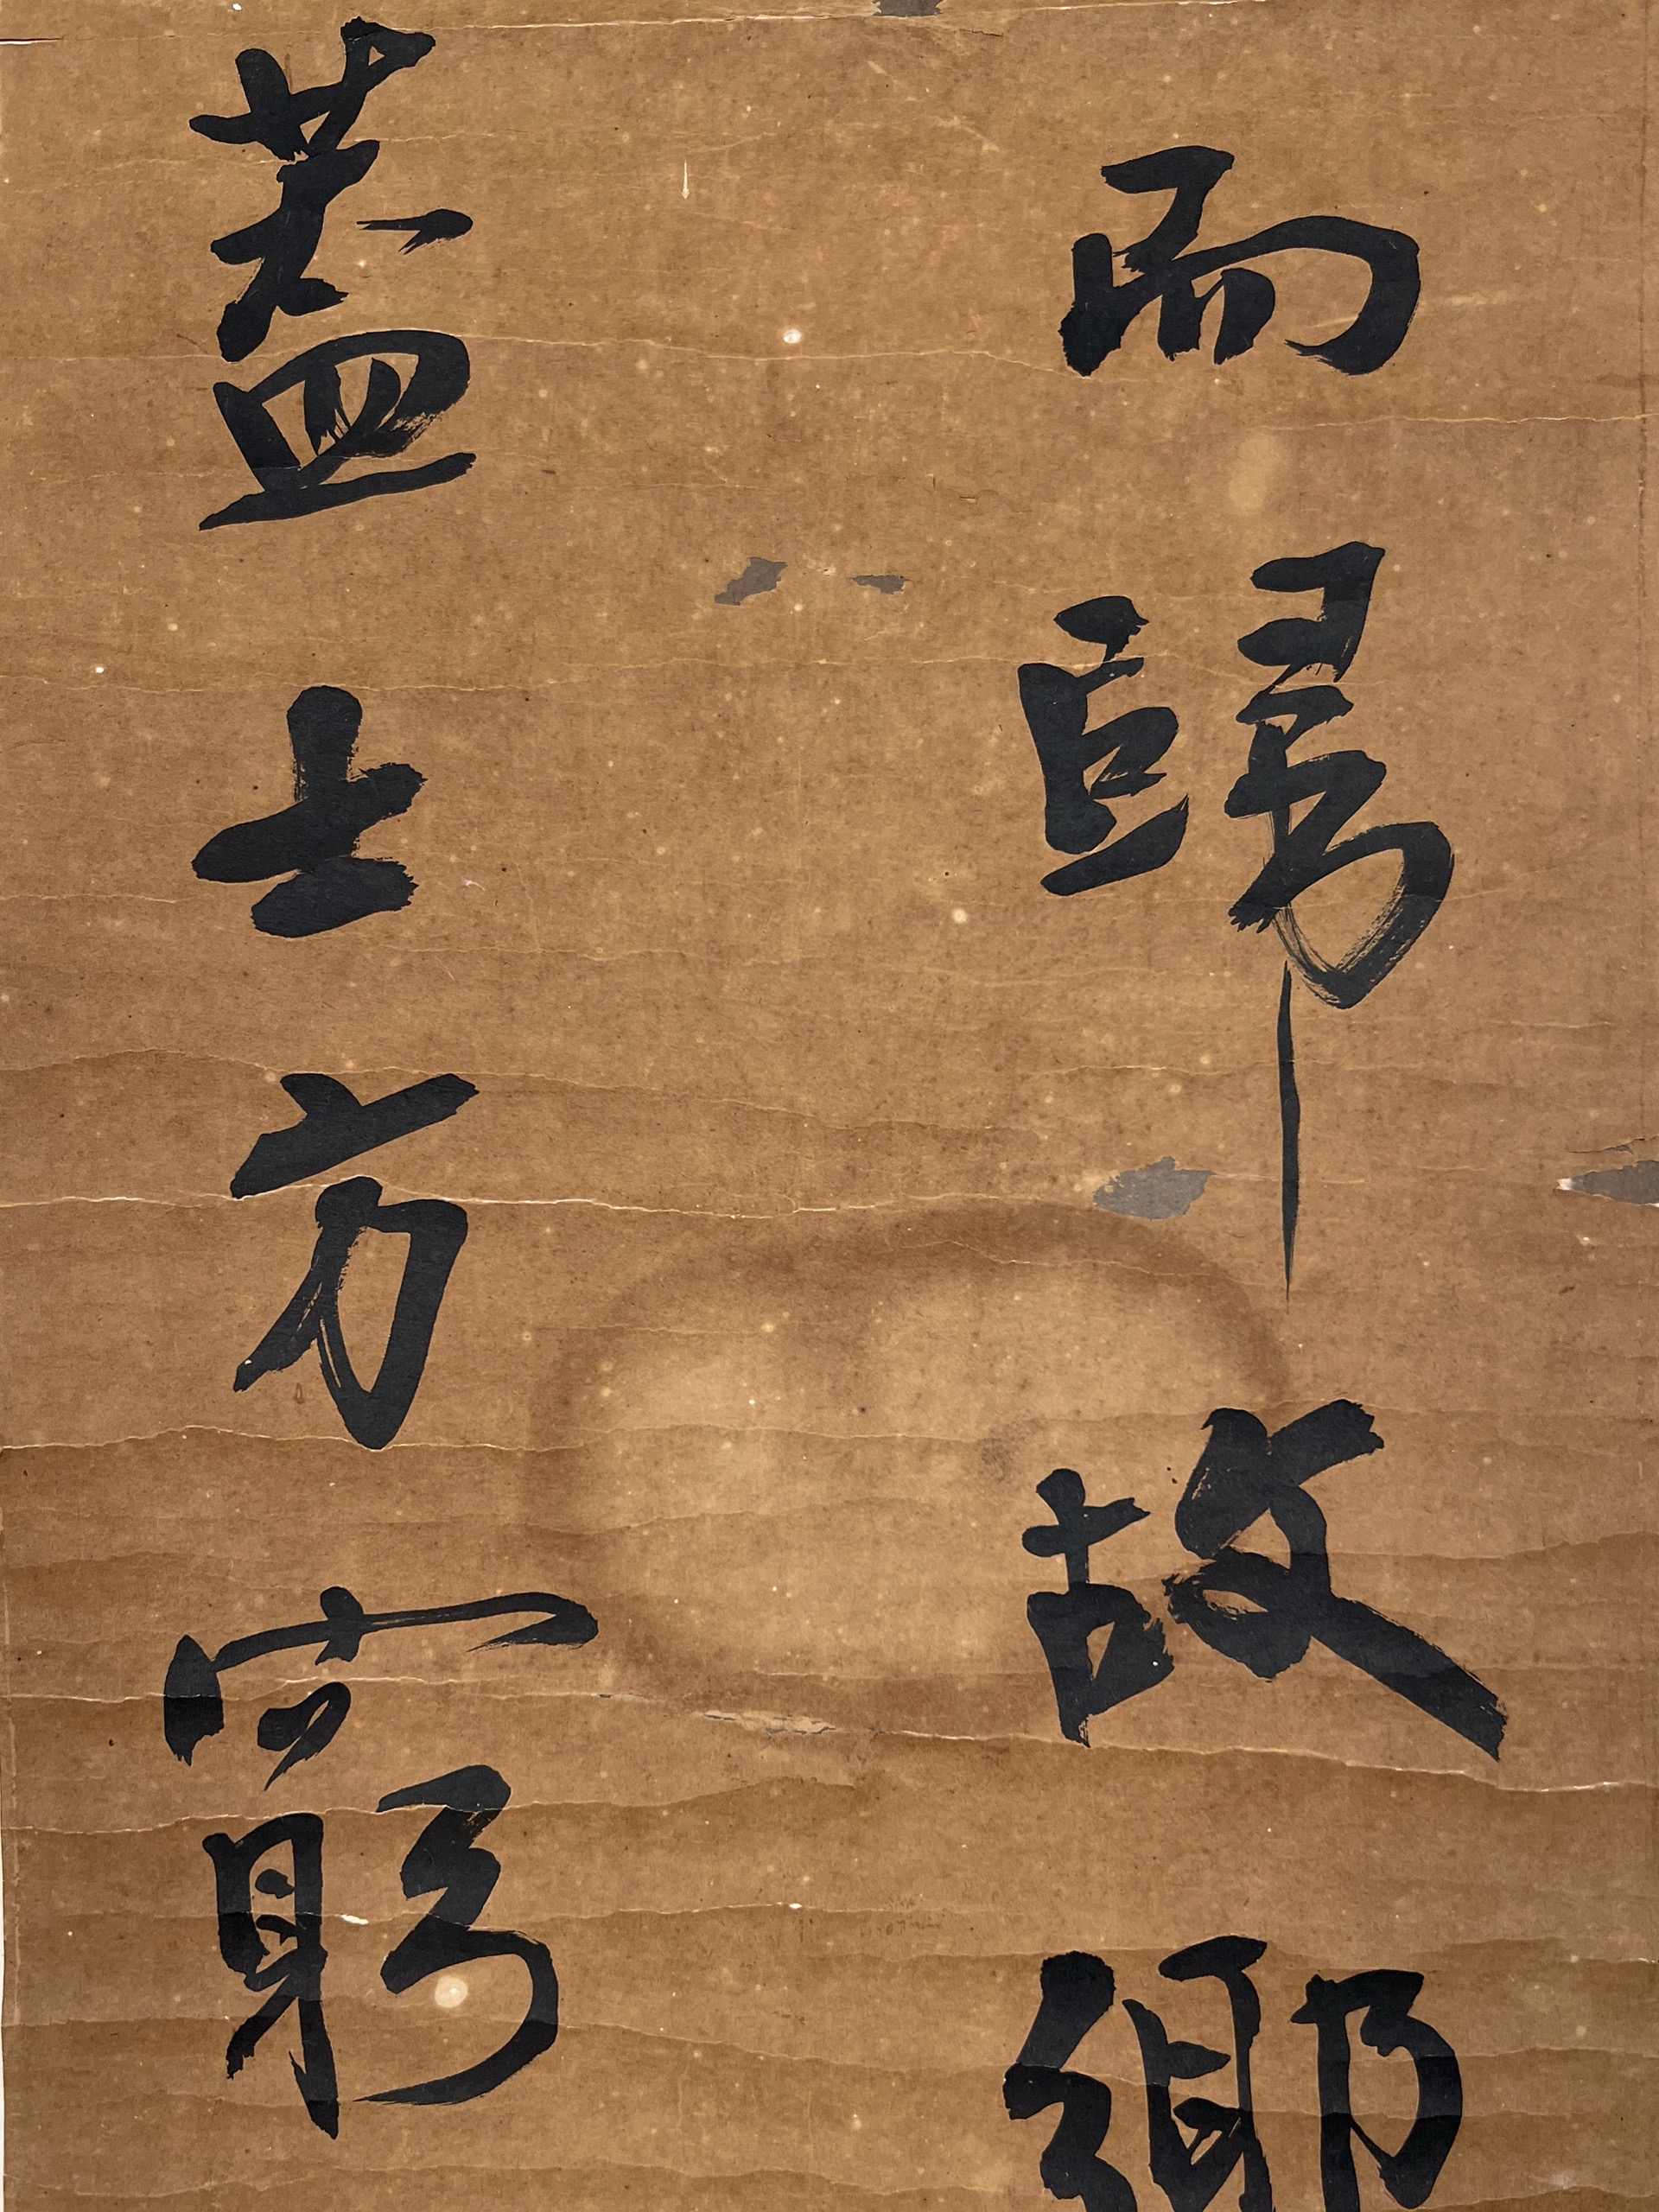 而歸故鄉
蓋士方窮